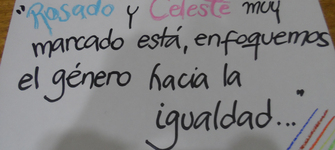 "Rosado y Celeste muy
marcado está, enfoquemos
el género hacia la
igualdad..."